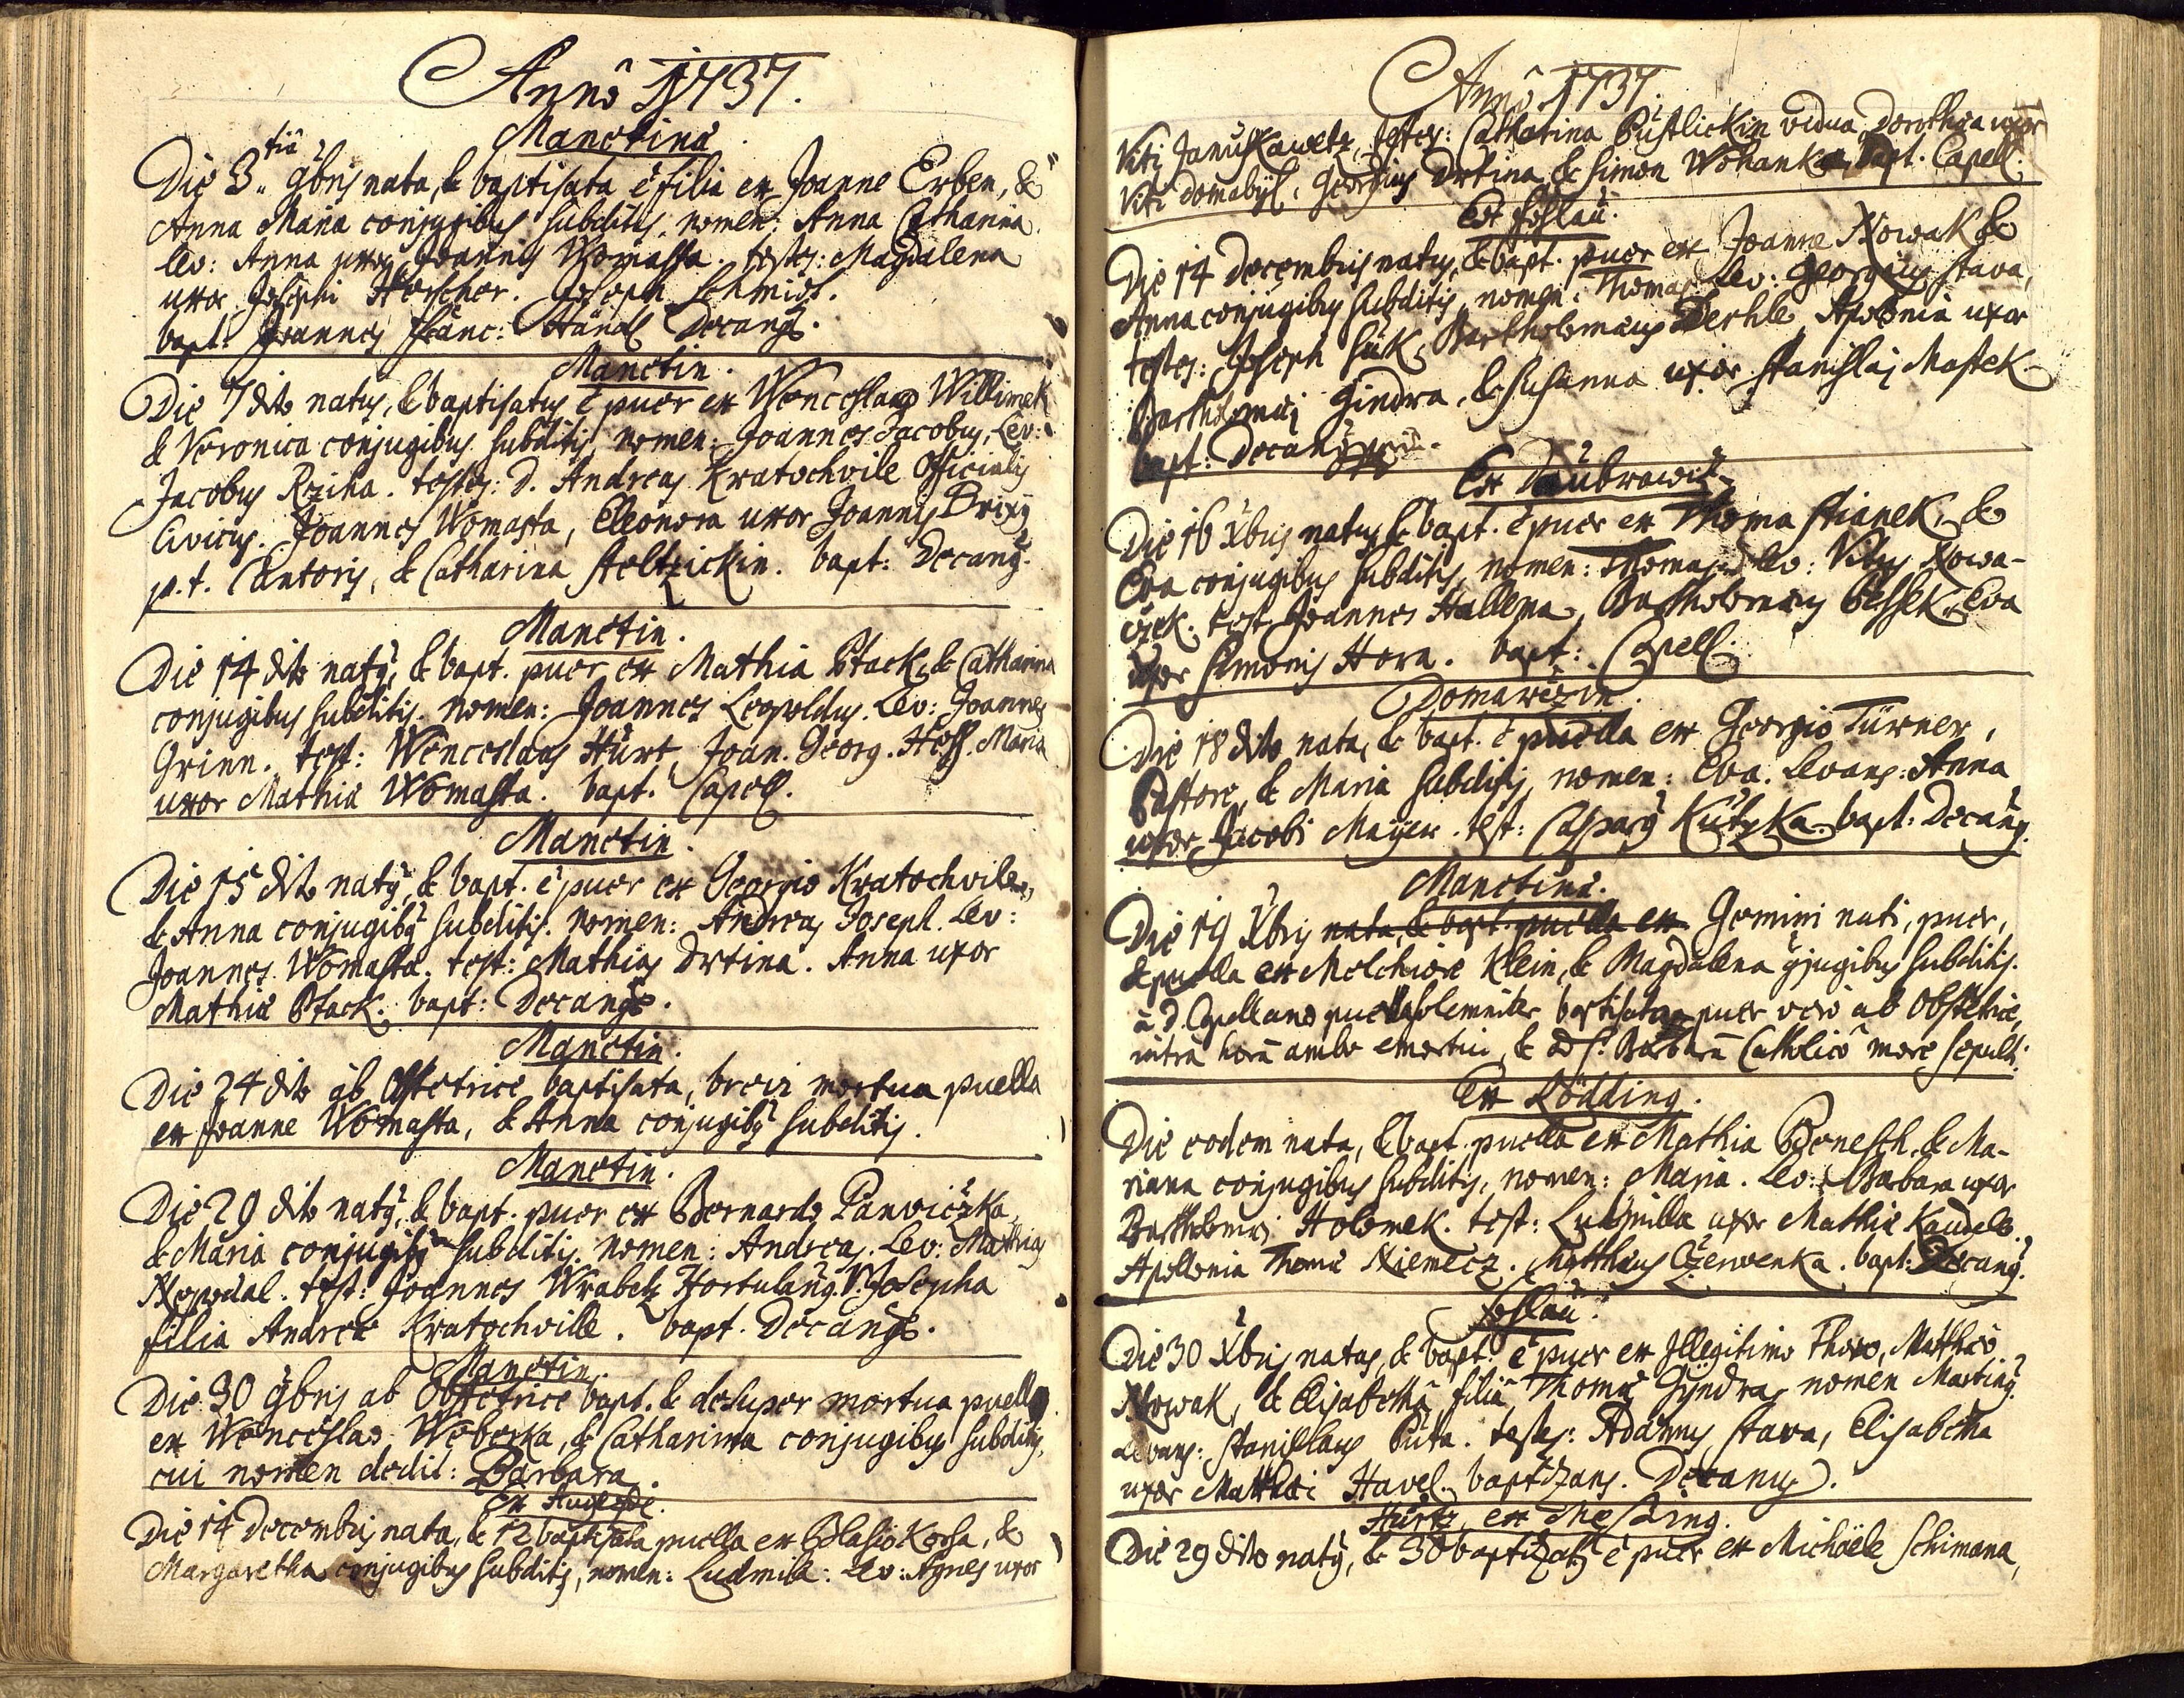 Annô 1737.
Manetinâ.
Die 3tiâ 9bris nata, & baptisata ē filia ex Joanne Erben, &
Anna Maria conjugibus subditis, nomen: Anna Catharina.
lev: Anna uxor Joannis Womasta. testes: Magdalena
uxor Josephi Hörscher. Joseph Schmidt.
bapt: Joannes Franc: Händl Decanus.
Manetin.
Die 7 dito natus, & baptisatus ē puer ex Wenceslao Willimek
& Veronica conjugibus subditis, nomen: Joannes Jacobus, Lev:
Jacobus Rziha. testes: D. Andreas Kratochvile Officialis
Civicus. Joannes Womasta, Eleonora uxor Joannis Brixÿ
p.t. Cantoris, & Catharina Steltzickin. bapt: Decanus.
Manetin.
Die 14 dito natus, & bapt. puer ex Mathia Ptack, & Catharina
conjugibus subditis. Nomen: Joannes Leopoldus. Lev: Joannes
Grinn. test: Wenceslaus Hürt, Joan. Georg. Hoss. Maria
uxor Mathiæ Womasta. bapt. Capell.
Manetin.
Die 15 dito natus & bapt. ē puer ex Georgio Kratochvile,
& Anna conjugibus subditis. Nomen: Andreas Joseph. Lev:
Joannes Womasta. test: Mathias Drtina. Anna uxor
Mathiæ Ptack. bapt: Decanus.
Manetin.
Die 24 dito ab Obstetrice baptisata, brevi mortua puella
ex Joanne Womasta, & Anna conjugibus subditis.
Manetin.
Die 29 dito natus, & bapt. puer ex Bernardo Panviczka,
& Maria conjugibus subditis. nomen: Andreas. Lev: Mathias
Nepodal. test: Joannes Wrabetz Hortulanus. V. Josepha
filia Andreæ Kratochville. bapt. Decanus.
Manetin.
Die 30 9bris ab Obstetrice bapt. & desuper mortua puella
ex Wenceslao Weberka, & Catharina conjugibus subditis,
cui nomen dedit: Barbara.
Die 14 Decembris nata, & 12 baptisata puella ex Blasio Korsa, &
Margaretha conjugibus subditis, nomen: Ludmila: Lev: Agnes uxor
Annô 1737.
Viti Januskawetz, testes: Catharina Pustlickin vidua, Dorothea uxor
Viti Domabÿl, Georgius Drtina & Simon Wohanka. bapt. Capell.
Die 14 Decembris natus, & bapt. puer ex Joanne Nowak &
Anna conjugibus subditis, nomen: Thomas. Lev: Georgius Stava,
testes: Joseph Suk, Bartholomæus Derhle, Apolonia uxor
Bartholomæi Gindra, & Susanna uxor Stanislai Mastek
bapt: Decanus
Ex Daubrawitz
Die 16 Xbris natus & bapt. ē puer ex Thoma Stianek, &
Eva conjugibus subditis, nomen: Thomas. lev: Vitus Nowa-
czek. test Joannes Hallema, Bartholomæus Bessek, Eva
uxor Simonis Hora. bapt: Capell.
Domawezin.
Die 18 dito nata, & bapt. ē puella ex Georgio Türner,
Pastore, & Maria subditis, nomen: Eva. Levans: Anna
uxor Jacobi Maÿer. test: Casparus Kutzka. bapt: Decanus.
Manetinæ.
Die 19 Xbris nata, & bapt. puella ex Gemini nati, puer,
& puella ex Melchiore Klein, & Magdalena 9jugibus subditis.
à D. Capellano puella solemniter baptisata, puer verò ab Obstetrice,
intra horā ambo emortui, & ad S. Barbarā Catholicô more sepulti.
Ex Rödding.
Die eodem nata, & bapt. puella ex Mathia Benesch, & Ma-
riana conjugibus subditis, nomen: Maria. Lev: Barbara uxor
Bartholomæi Holemek. test: Ludmilla uxor Mathiæ Kaudele.
Apollonia Thomæ Niemecz. Matthæus Czerwenka. bapt: Decanus.
Die 30 Xbris natus, & bapt. ē puer ex Illegitimo Thoro, Matthæo
Nowak, & Elisabetha filia Thomæ Gÿndra, nomen Martinus.
Levans: Stanislaus Puta. testes: Adamus Stava, Elisabetha
uxor Matthæi Havel. baptizans. Decanus.
Hurtz, ex Messing.
Die 29 dito natus, & 30 baptizatus ē puer ex Michaele Schimana,